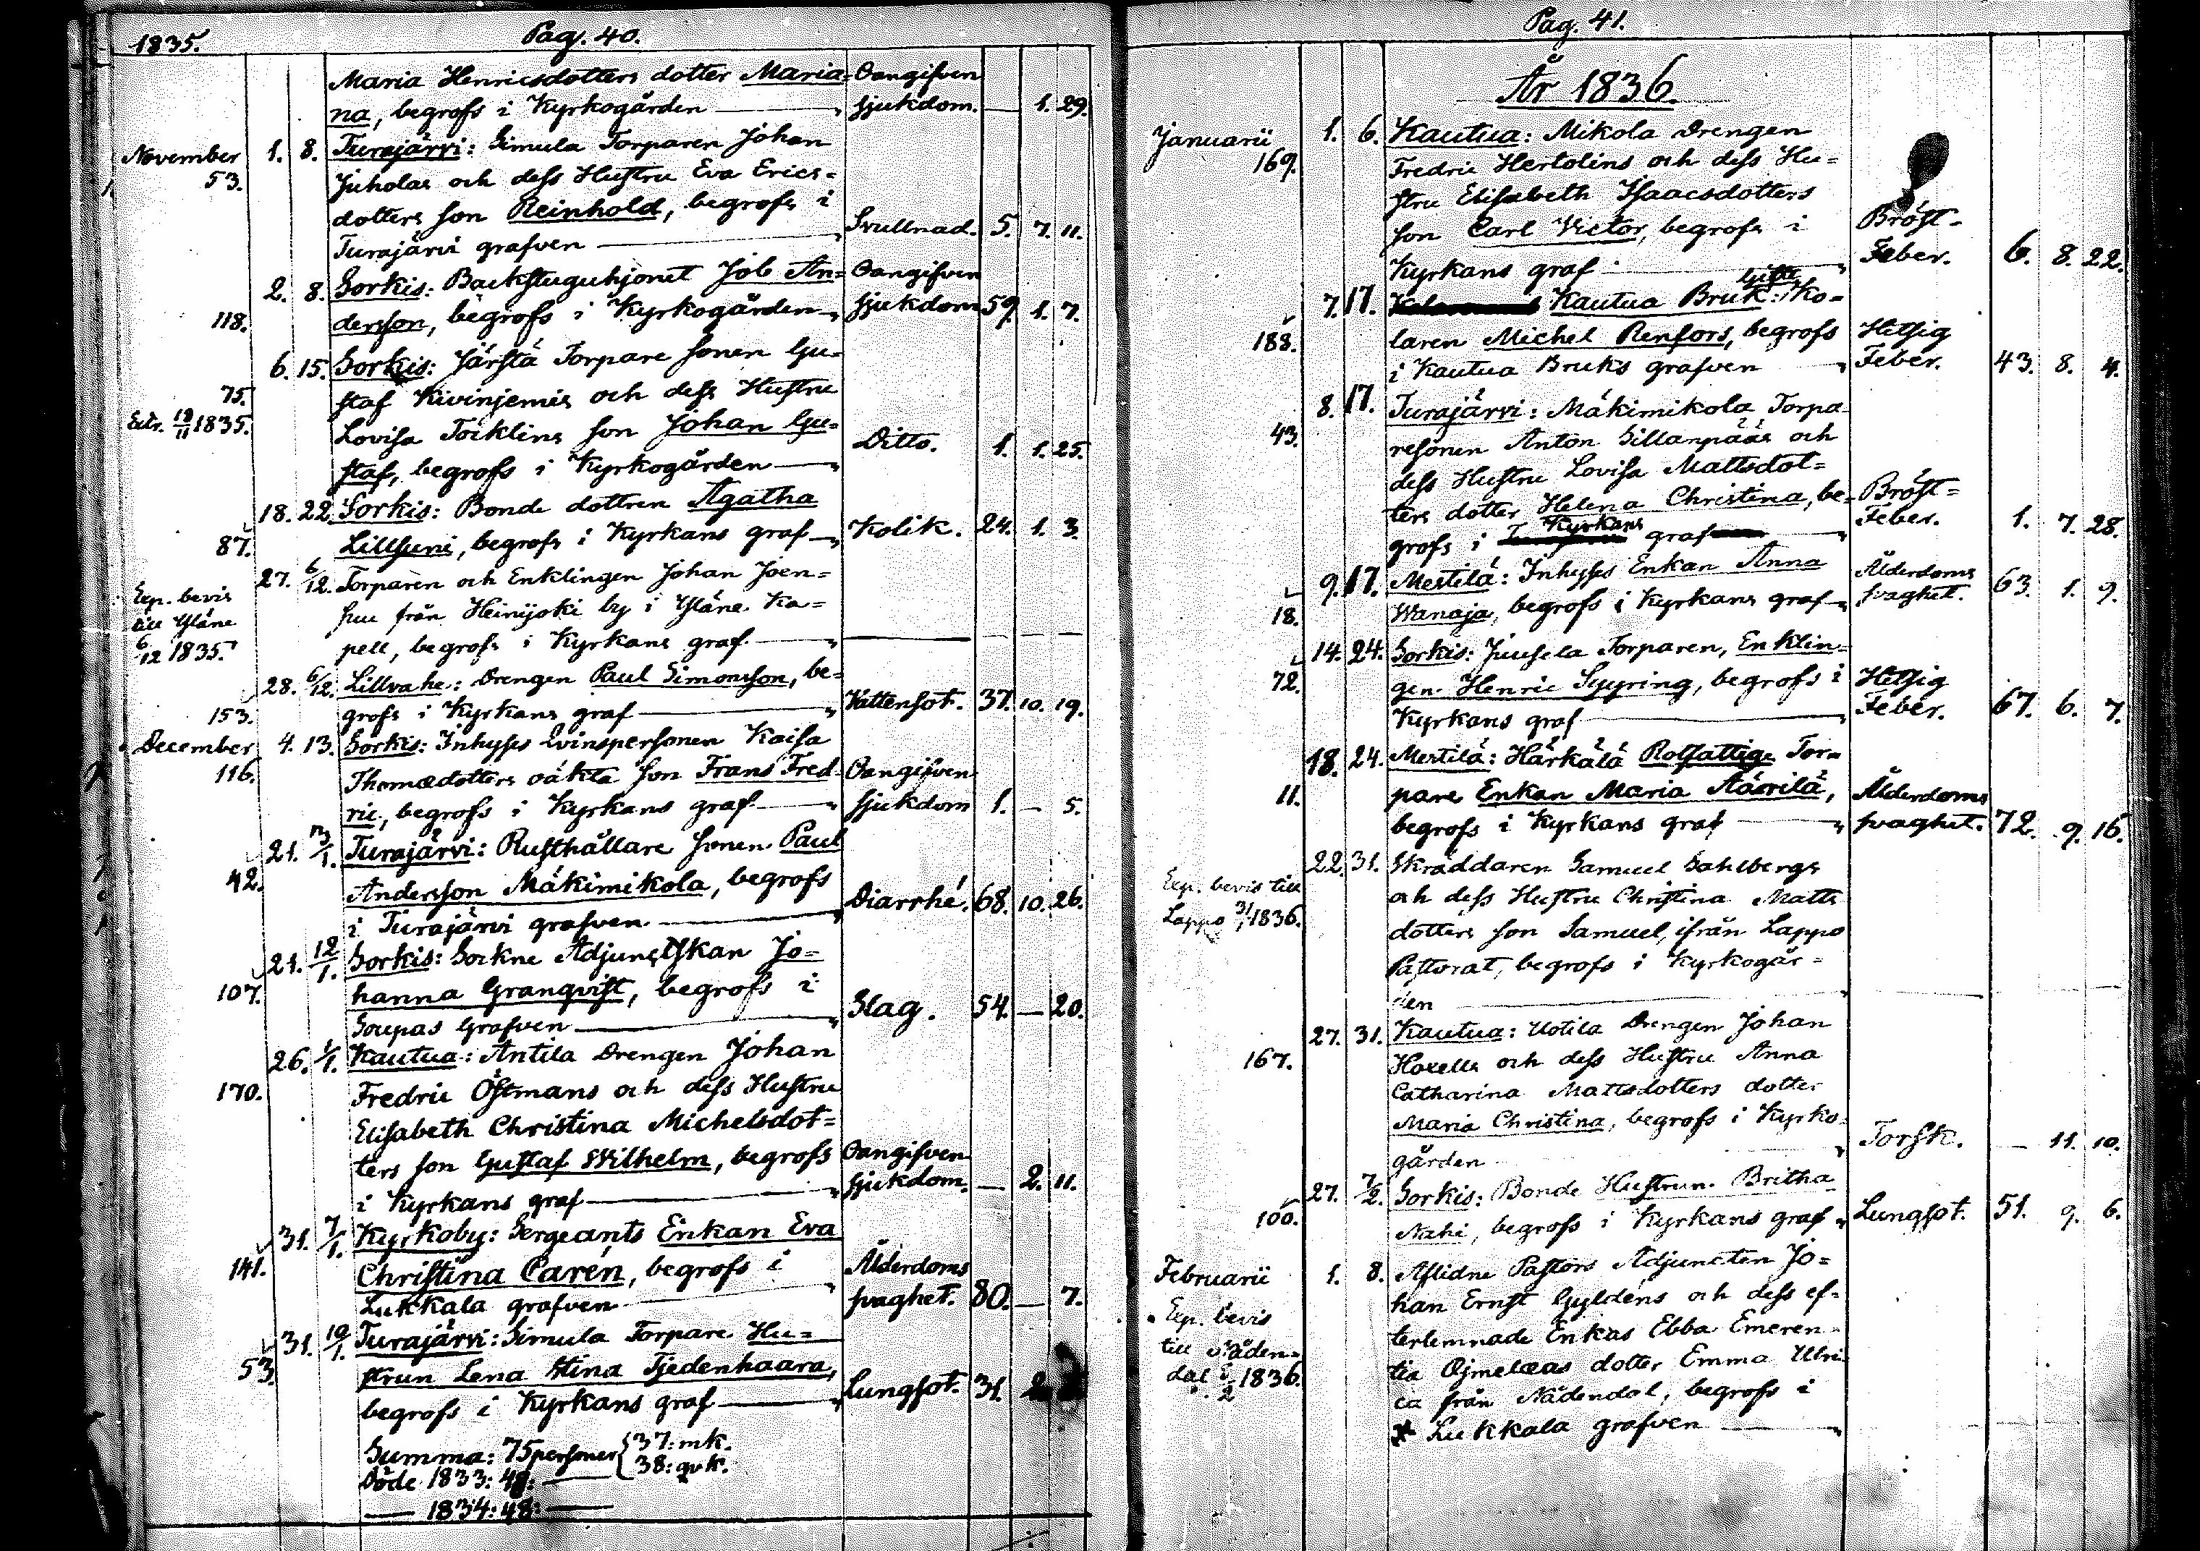 1835.
Pag. 40.
Maria Henricsdotters dotter Maria= Oangifven
na, begrofs i Kyrkogården — sjukdom. — 1. 29.
November 1. 8. Turajärvi: Simula Torparen Johan
53. Juholas och dess Hustru Eva Erics=
dotters son Reinhold, begrofs i
Turajärvi grafven — Svullnad. 5. 7. 11.
2. 8. Sorkis: Backstuguhjonet Job An= Oangifven
118. dersson, begrofs i Kyrkogården — sjukdom 59. 1. 7.
6. 15. Sorkis: Järstä Torpare sonen Gu=
75. staf Kivinjemis och dess Hustru
Extr. 19/11 1835. Lovisa Tocklins son Johan Gu= Ditto. 1. 1. 25.
staf, begrofs i Kyrkogården —
18. 22. Sorkis: Bonde dottren Agatha
87. Lillsuni, begrofs i Kyrkans graf — Kolik. 24. 1. 3.
27. 6/12. Torparen och Enklingen Johan Joen=
Exp. bevis suu från Heinijoki by i Yläne Ka=
till Yläne pell, begrofs i Kyrkans graf —
6/12 1835.
28. 6/12. Lillvahe: Drengen Paul Simonsson, be=
153. grofs i Kyrkans graf — Vattensot. 37. 10. 19.
December 4. 13. Sorkis: Inhyses Qvinspersonen Kaisa
116. Thomædotters oäkta son Frans Fred= Oangifven
ric, begrofs i Kyrkans graf — sjukdom 1. — 5.
21. 3/1. Turajärvi: Rusthållare sonen Paul
42. Andersson Mäkimikola, begrofs
i Turajärvi grafven — Diarrhé. 68. 10. 26.
21. 12/1. Sorkis: Sockne Adjunctskan Jo=
107. hanna Granqvist, begrofs i
Soupas Grafven — Slag. 54. — 20.
26. 1/1. Kautua: Antila Drengen Johan
170. Fredric Östmans och dess Hustru
Elisabeth Christina Michelsdot=
ters son Gustaf Wilhelm, begrofs Oangifven
i Kyrkans graf — sjukdom. — 2. 11.
31. 7/1. Kyrkoby: Sergeants Enkan Eva
141. Christina Caren, begrofs i Ålderdoms
Lukkala grafven — svaghet. 80. — 7.
31. 10/1. Turajärvi: Simula Torpare Hu=
53. strun Lena Stina Tjedenhaara,
begrofs i Kyrkans graf — Lungsot. 31. 2.
Summa: 75 personer { 37: mk.
38: qvk.
Döde 1833: 48: —
— 1834: 48: —
Pag. 41.
År 1836.
Januarii 1. 6. Kautua: Mikola Drengen
169. Fredric Hertolins och dess Hu=
stru Elisabeth Isaacsdotters
son Carl Victor, begrofs i Bröst=
Kyrkans graf — Feber. 6. 8. 22.
7. 17. Kautua Bruk: Ko=
188. laren Michel Renfors, begrofs Hetsig
i Kautua Bruks grafven — Feber. 43. 8. 4.
8. 17. Turajärvi: Mäkimikola Torpa
43. resonen Anton Sillanpääs och
dess Hustru Lovisa Mattsdot=
ters dotter Helena Christina, be= Bröst=
grofs i Kyrkans graf — Feber. 1. 7. 28.
9. 17. Mestilä: Inhyses Enkan Anna Ålderdoms
18. Wanaja, begrofs i Kyrkans graf — svaghet. 63. 1. 9.
14. 24. Sorkis: Juusela Torparen, Enklin=
72. gen Henric Spyring, begrofs i Hetsig
Kyrkans graf — Feber. 67. 6. 7.
18. 24. Mestilä: Härkälä Rotfattige Tor=
11. pare Enkan Maria Äävilä, Ålderdoms
begrofs i Kyrkans graf — svaghet. 72. 9. 16.
22. 31. Skräddaren Samuel Sahlbergs
Exp. bevis till och dess Hustru Christina Matts
Lappo 31/1 1836. dotters son Samuel, ifrån Lappo
Pastorat, begrofs i Kyrkogår=
den —
27. 31. Kautua: Uotila Drengen Johan
167. Hoxells och dess Hustru Anna
Catharina Mattsdotters dotter
Maria Christina, begrofs i Kyrko=
gården — Torsk. — 11. 10.
27. 7/2. Sorkis: Bonde Hustrun Britha
100. Nahi, begrofs i Kyrkans graf — Lungsot. 51. 9. 6.
Februarii 1. 8. Aflidne Pastors Adjuncten Jo=
Exp. bevis han Ernst Gyldéns och dess ef=
till Nåden= terlemnade Enkas Ebba Emeren=
dal 1836. tia Ojmelæas dotter Emma Ulri
ca från Nådendal, begrofs i
Lukkala grafven —